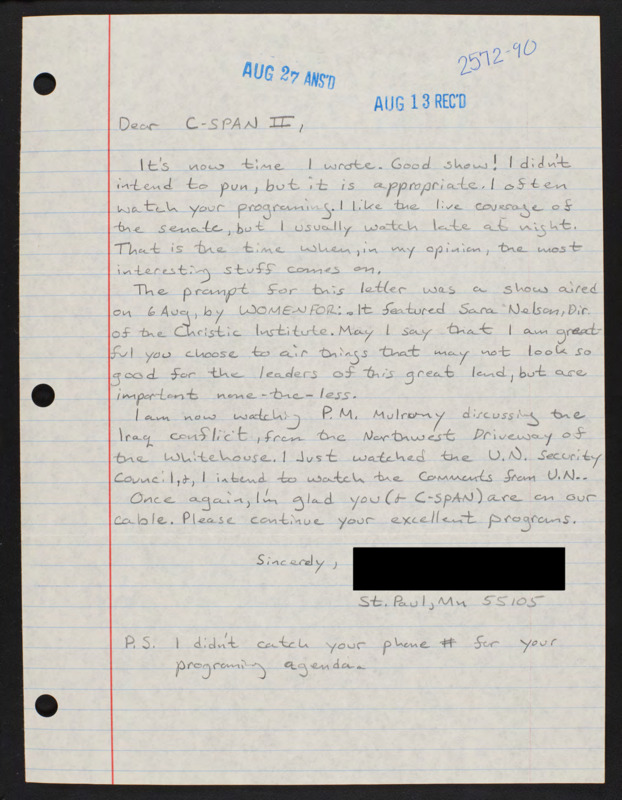 2572-90
AUG 27 ANS'D
AUG 13 REC'D
Dear C-SPAN II,
It's now time I wrote. Good show! I didn't
intend to pun, but it is appropriate. I often
watch your programing. I like the live coverage of
the senate, but I usually watch late at night.
That is the time when, in my opinion, the most
interesting stuff comes on.
The prompt for this letter was a show aired
on 6 Aug, by WOMENFOR:. It featured Sara Nelson, Dir.
of the Christic Institute. May I say that I am great-
ful you choose to air things that may not look so
good for the leaders of this great land, but are
important none-the-less.
I am now watching P.M. Mulrony discussing the
Iraq conflict, from the Northwest Driveway of
the Whitehouse. I just watched the U.N. Security
Council, &, I intend to watch the comments from U.N..
Once again, I'm glad you (& C-SPAN) are on our
cable. Please continue your excellent programs.
Sincerely,
St. Paul, Mn 55105
P.S. I didn't catch your phone # for your
programing agenda.